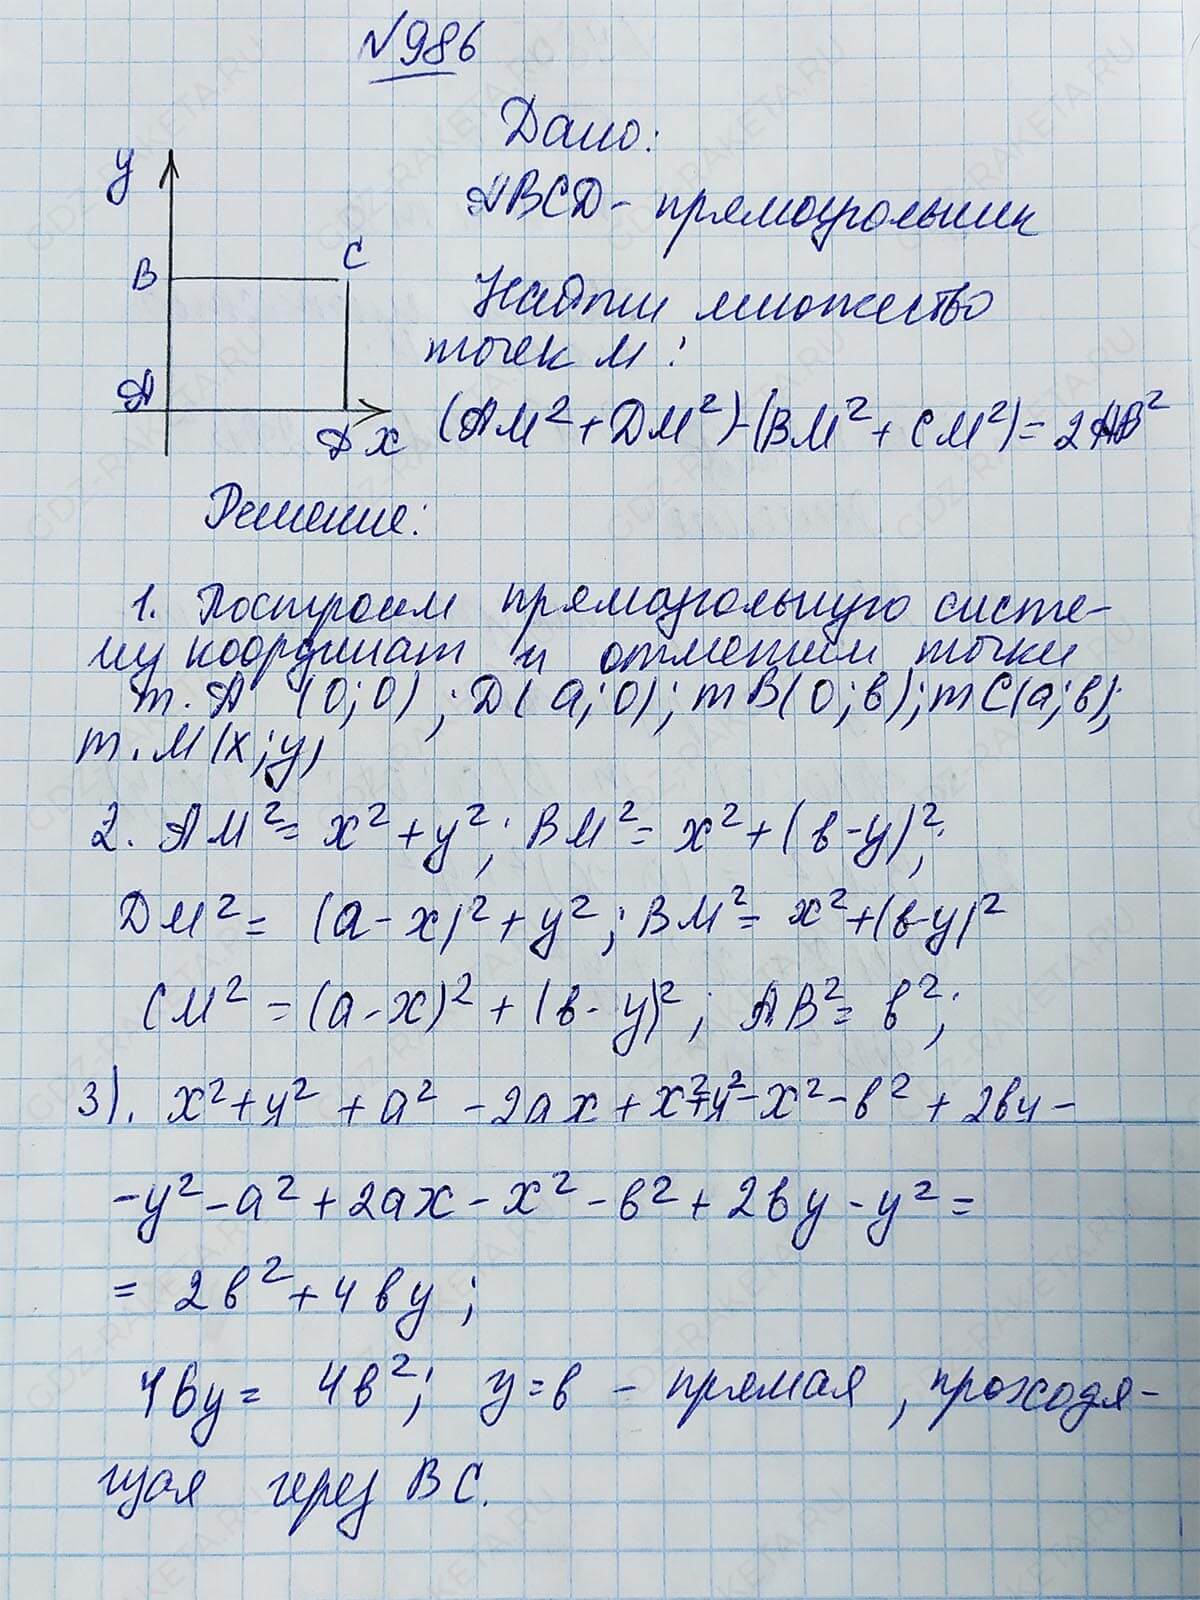 №986
Дано:
ABCD - прямоугольник
y
B
C
A
D x
Найти множество
точек M:
(AM² + DM²) - (BM² + CM²) = 2AB²
Решение:
1. Построим прямоугольную систе-
му координат и отметим точки
т. A (0;0); D(a;0); т B(0;в); т C(a;в);
т. M(x;y)
2. AM² = x² + y²; BM² = x² + (в-y)²;
DM² = (a-x)² + y²; BM² = x² + (в-y)²
CM² = (a-x)² + (в-y)²; AB² = в²;
3). x² + y² + a² - 2ax + x² + y² - x² - в² + 2вy -
- y² - a² + 2ax - x² - в² + 2вy - y² =
= 2в² + 4вy;
4вy = 4в²; y = в - прямая, проходя-
щая через BC.
GDZ-RAKETA.RU